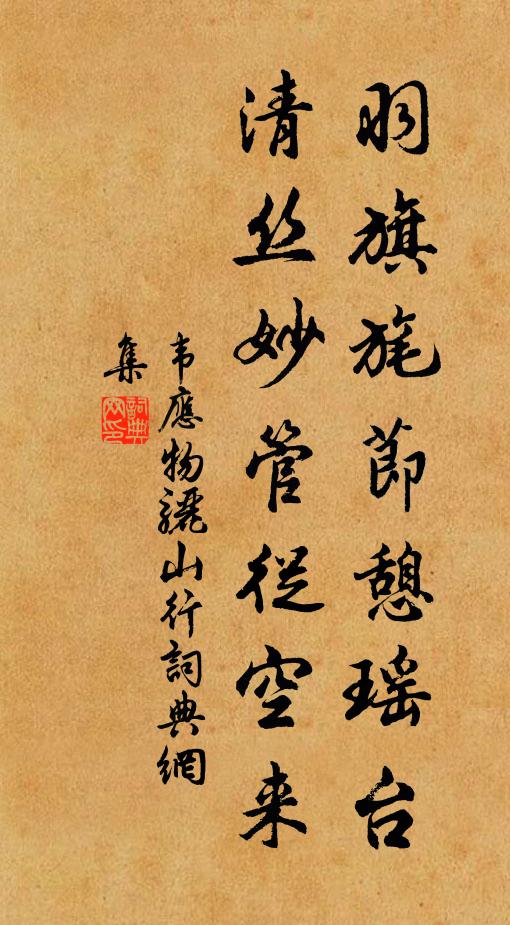 羽旗旄节憩瑶台
清丝妙管從空来
韦應物驪山行詞典網
集
詞典網印